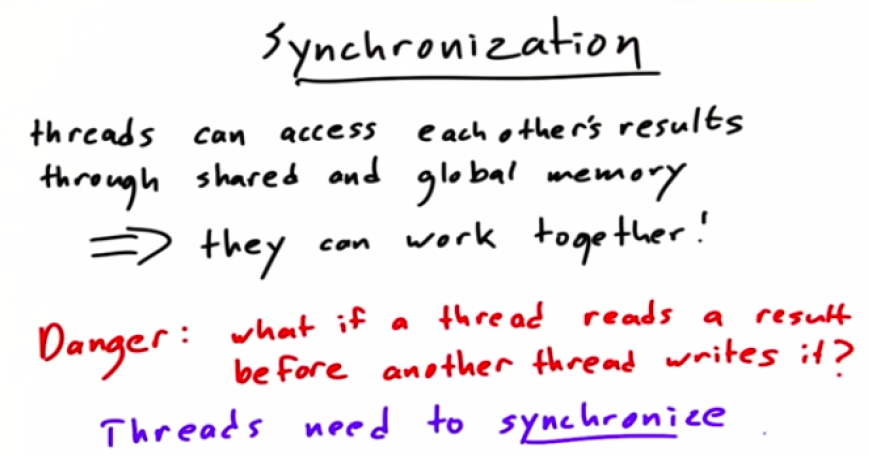 Synchronization
threads can access each other's results
through shared and global memory
⇒ they can work together!
Danger: what if a thread reads a result
before another thread writes it?
Threads need to synchronize